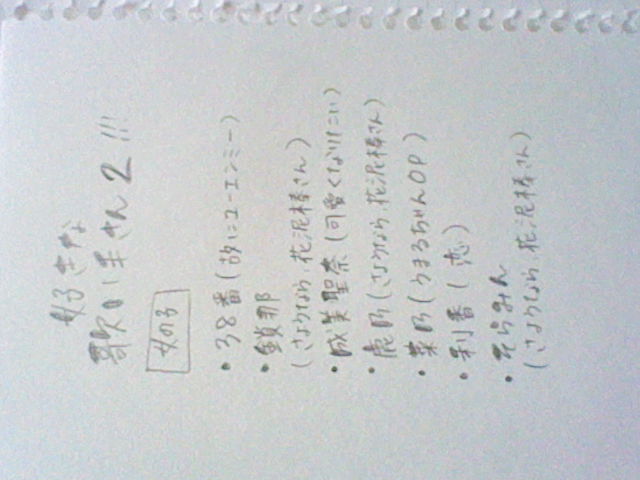 好きな
歌い手さん2!!!
女の子
・38番(故にユーエンミー)
・鎖那
(さよなら、花泥棒さん)
・成美聖奈(可愛くなりたい)
・鹿乃(さよなら、花泥棒さん)
・菜乃(うまるちゃんOP)
・利香(恋)
・そらみん
(さよなら、花泥棒さん)